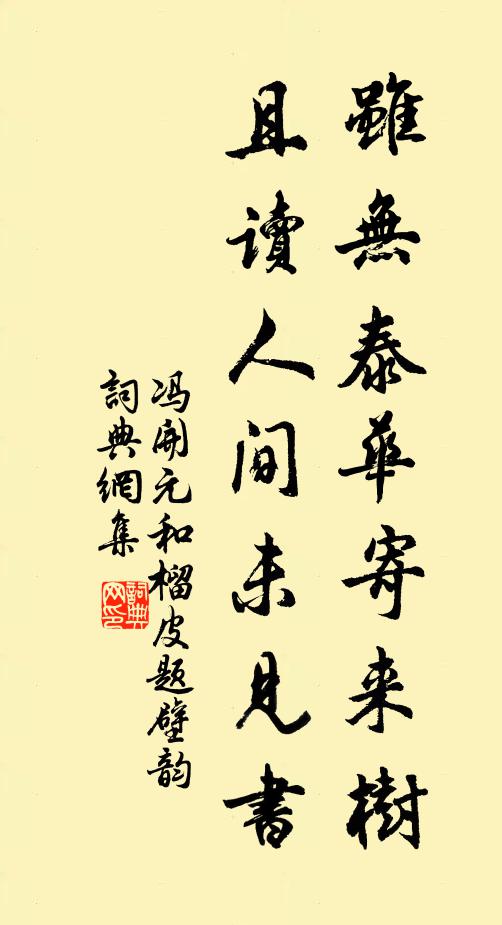 雖無泰華寄来樹
且读人间未見書
冯開元和榴皮题壁韵
詞典網集
詞典網印